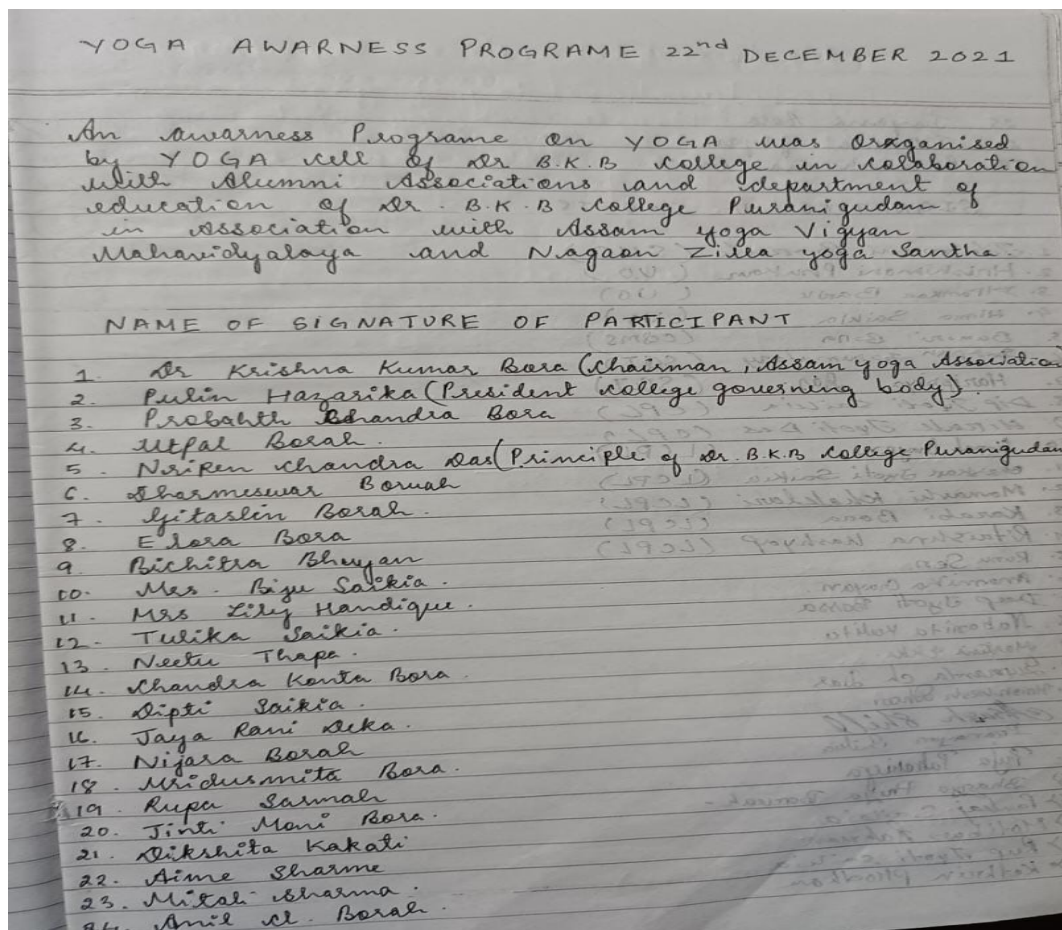 YOGA AWARNESS PROGRAME 22nd DECEMBER 2021
An awarness Programe on YOGA was oraganised
by YOGA cell of Dr B.K.B college in colaboration
with Alumni Associations and department of
education of Dr. B.K.B college Puranigudam
in association with Assam yoga Vigyan
Mahavidyalaya and Nagaon Zilla yoga Santha.
NAME OF SIGNATURE OF PARTICIPANT
1. Dr Krishna Kumar Bora (Chairman, Assam yoga Associatio
2. Pulin Hazarika (President college governing body).
3. Probahth Chandra Bora
4. Utpal Borah.
5. Nripen chandra Das (Principle of Dr. B.K.B College Puranigudam
6. Dharmeswar Boruah
7. Gitaslin Borah.
8. Elora Bora
9. Bichitra Bhuyan
10. Mrs. Biju Saikia.
11. Mrs Lily Handique.
12. Tulika Saikia.
13. Neetu Thapa.
14. Chandra Kanta Bora.
15. Dipti Saikia.
16. Jaya Rani Deka.
17. Nijara Borah
18. Mridusmita Bora.
19. Rupa Sarmah
20. Jinti Moni Bora.
21. Dikshita Kakati
22. Aime Sharme
23. Mitali Sharma.
24. Anil cl. Borah.